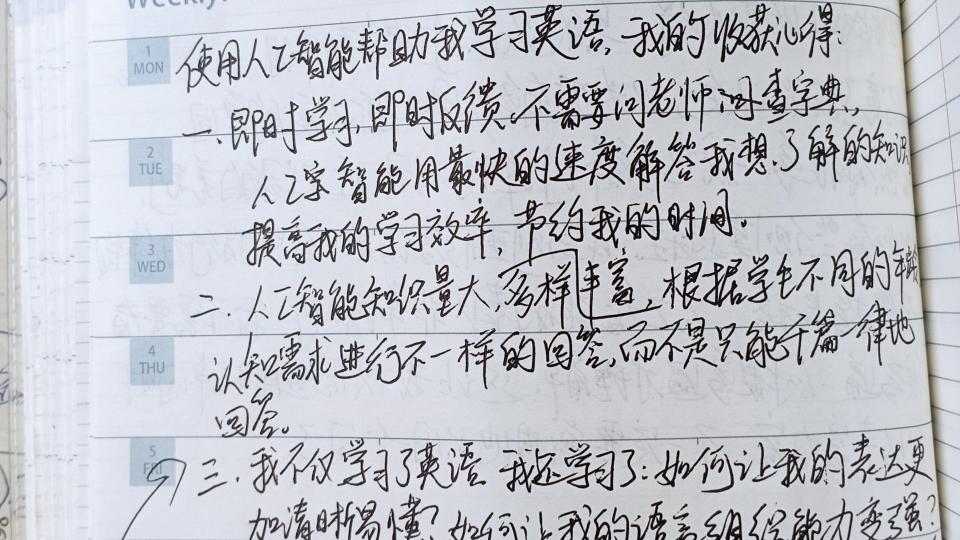 Weekly
1
MON
使用人工智能帮助我学习英语,我的收获心得:
一、即时学习,即时反馈。不需要问老师 查字典,
2
TUE
人工智能用最快的速度解答我想了解的知识
提高我的学习效率,节约我的时间。
3
WED
二、人工智能知识量大,多样丰富,根据学生不同的年龄
4
THU
认知需求进行不一样的回答,而不是只能千篇一律地
回答。
5
FRI
三、我不仅学习了英语,我还学习了:如何让我的表达更
加清晰易懂?如何让我的语言组织能力变强?